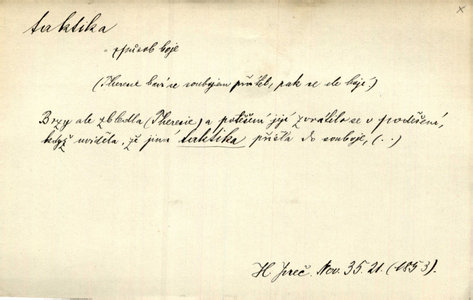 ×
taktika
- způsob boje
(Therese baví se soubojem přátel, pak se ale bojí)
Brzy ale zbledla (Therese) a potěšení její zvrátilo se v poděšení,
když uviděla, že jiná taktika přišla do souboje, (..)
H Jireč. Nov. 35. 21. (1853.)